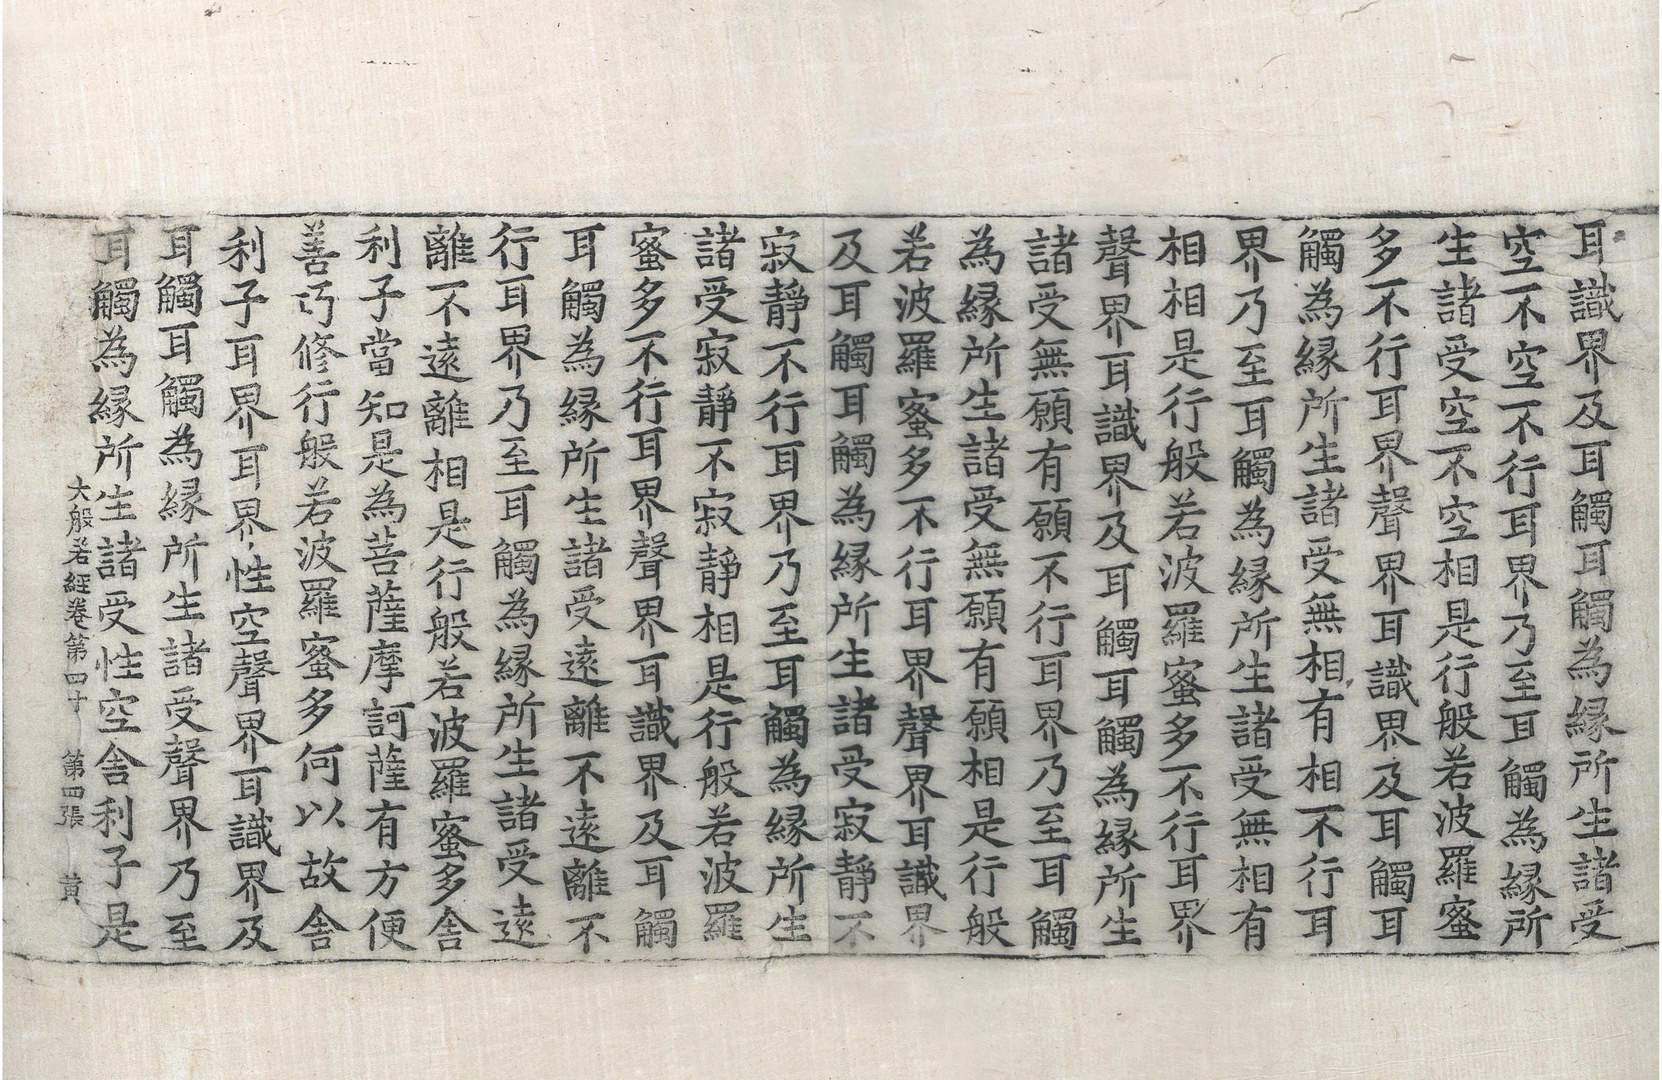 耳識界及耳觸耳觸為緣所生諸受
空不空不行耳界乃至耳觸為緣所
生諸受空不空相是行般若波羅蜜
多不行耳界聲界耳識界及耳觸耳
觸為緣所生諸受無相有相不行耳
界乃至耳觸為緣所生諸受無相有
相相是行般若波羅蜜多不行耳界
聲界耳識界及耳觸耳觸為緣所生
諸受無願有願不行耳界乃至耳觸
為緣所生諸受無願有願相是行般
若波羅蜜多不行耳界聲界耳識界
及耳觸耳觸為緣所生諸受寂靜不
寂靜不行耳界乃至耳觸為緣所生
諸受寂靜不寂靜相是行般若波羅
蜜多不行耳界聲界耳識界及耳觸
耳觸為緣所生諸受遠離不遠離不
行耳界乃至耳觸為緣所生諸受遠
離不遠離相是行般若波羅蜜多舍
利子當知是為菩薩摩訶薩有方便
善巧修行般若波羅蜜多何以故舍
利子耳界耳界性空聲界耳識界及
耳觸耳觸為緣所生諸受聲界乃至
耳觸為緣所生諸受性空舍利子是
大般若經卷第四十 第四張 黄